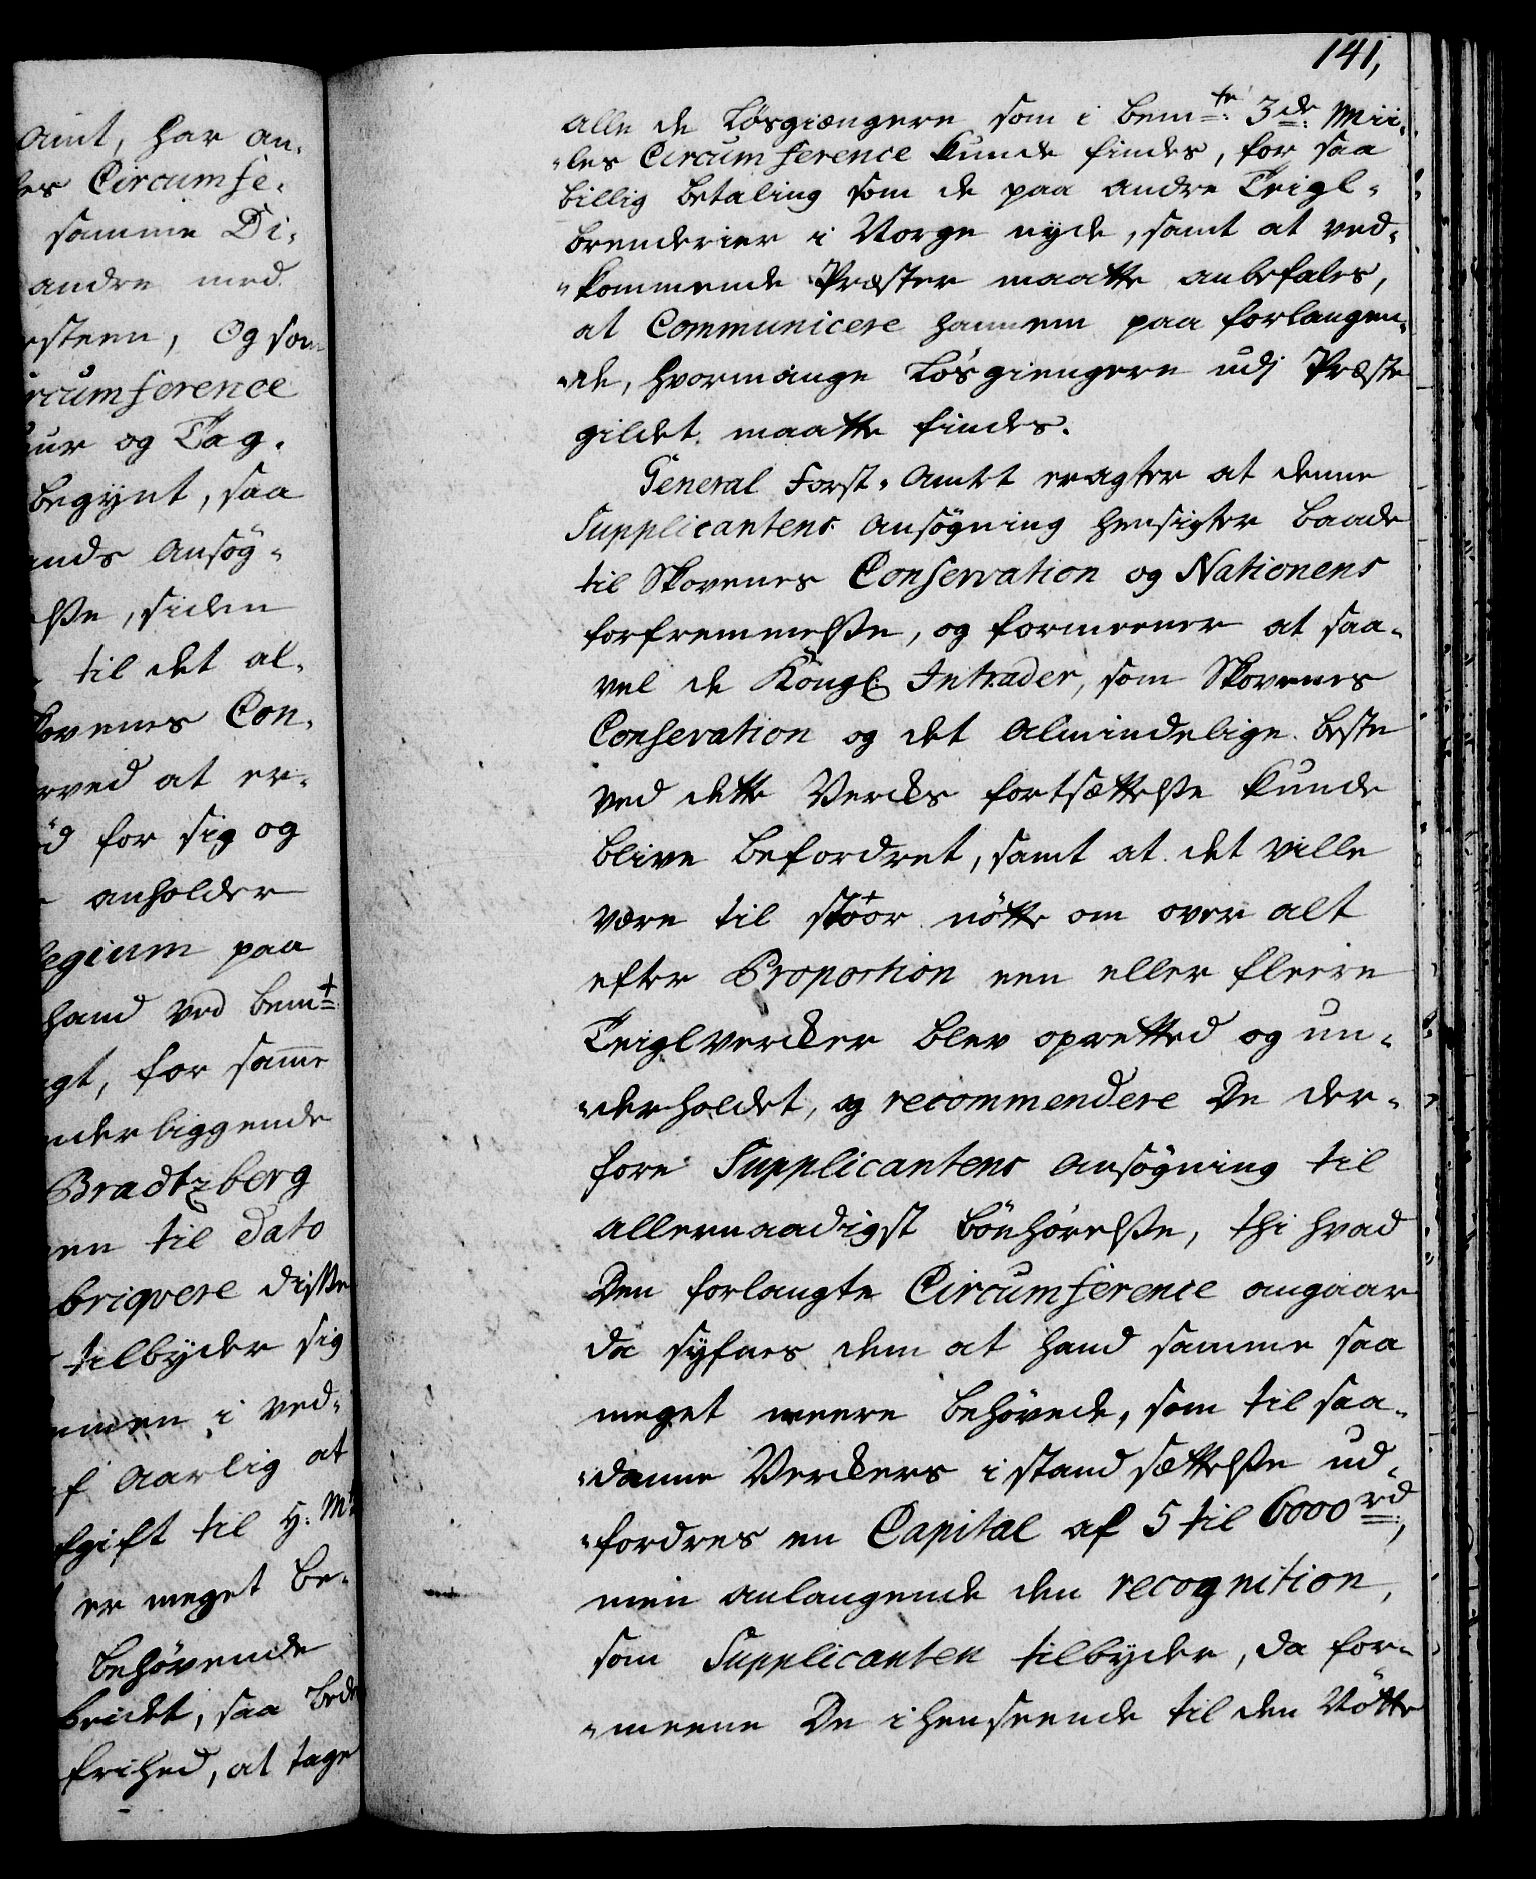 Amt, har an-
les Circumfe-
samme Di-
andre med
steen, Og som
ircumference
uur og Tag-
begynt, saa
ands Ansøg-
lße, siden
til det al-
kovenes Con-
rved at er-
for sig og
anholder
legium paa
hand ved bemt
gt, for samme
nderliggende
Bradtzberg
en til dato
briqvere disse
tilbyder sig
men i ved-
f Aarlig at
fgift til H: Mt
er meget be-
behövende
beidet, saa bed
frihed, at tage
141,
alle de Løsgiængere som i bemte: 3de: Mii-
-les Circumference kunde findes, for saa
billig betaling som de paa andre Teigl-
brenderier i Norge nyde, samt at ved-
-kommende Præster maatte anbefales,
at Communicere hannem paa forlangen-
-de, hvormange Løsgiengere udj Præste
gildet maatte findes.
General Forst-Amtet eragter at denne
Supplicantens Ansøgning hensigter baade
til Skovenes Conservation og Nationens
forfremmelße, og formeener at saa-
vel de Kongl: Intrader, som Skovenes
Conservation og det Almindelige beste
ved dette Vercks fortsættelße kunde
blive befordret, samt at det ville
være til stoor nötte om over alt
efter Proportion een eller fleere
Teiglvercker blev oprettted og un-
-derholdet, og recommendere De der-
fore Supplicantens Ansøgning til
allernaadigst bönhörelße, thi hvad
Den forlangte Circumference angaar
da syfnes dem at hand samme saa
meget meere behövede, som til saa-
-danne Verckers istandsættelße ud-
-fordres en Capital af 5 til 6000 rd,
men anlangende den recognition,
som Supplicanten tilbyder, da for-
-meene De i henseende til den Nötte